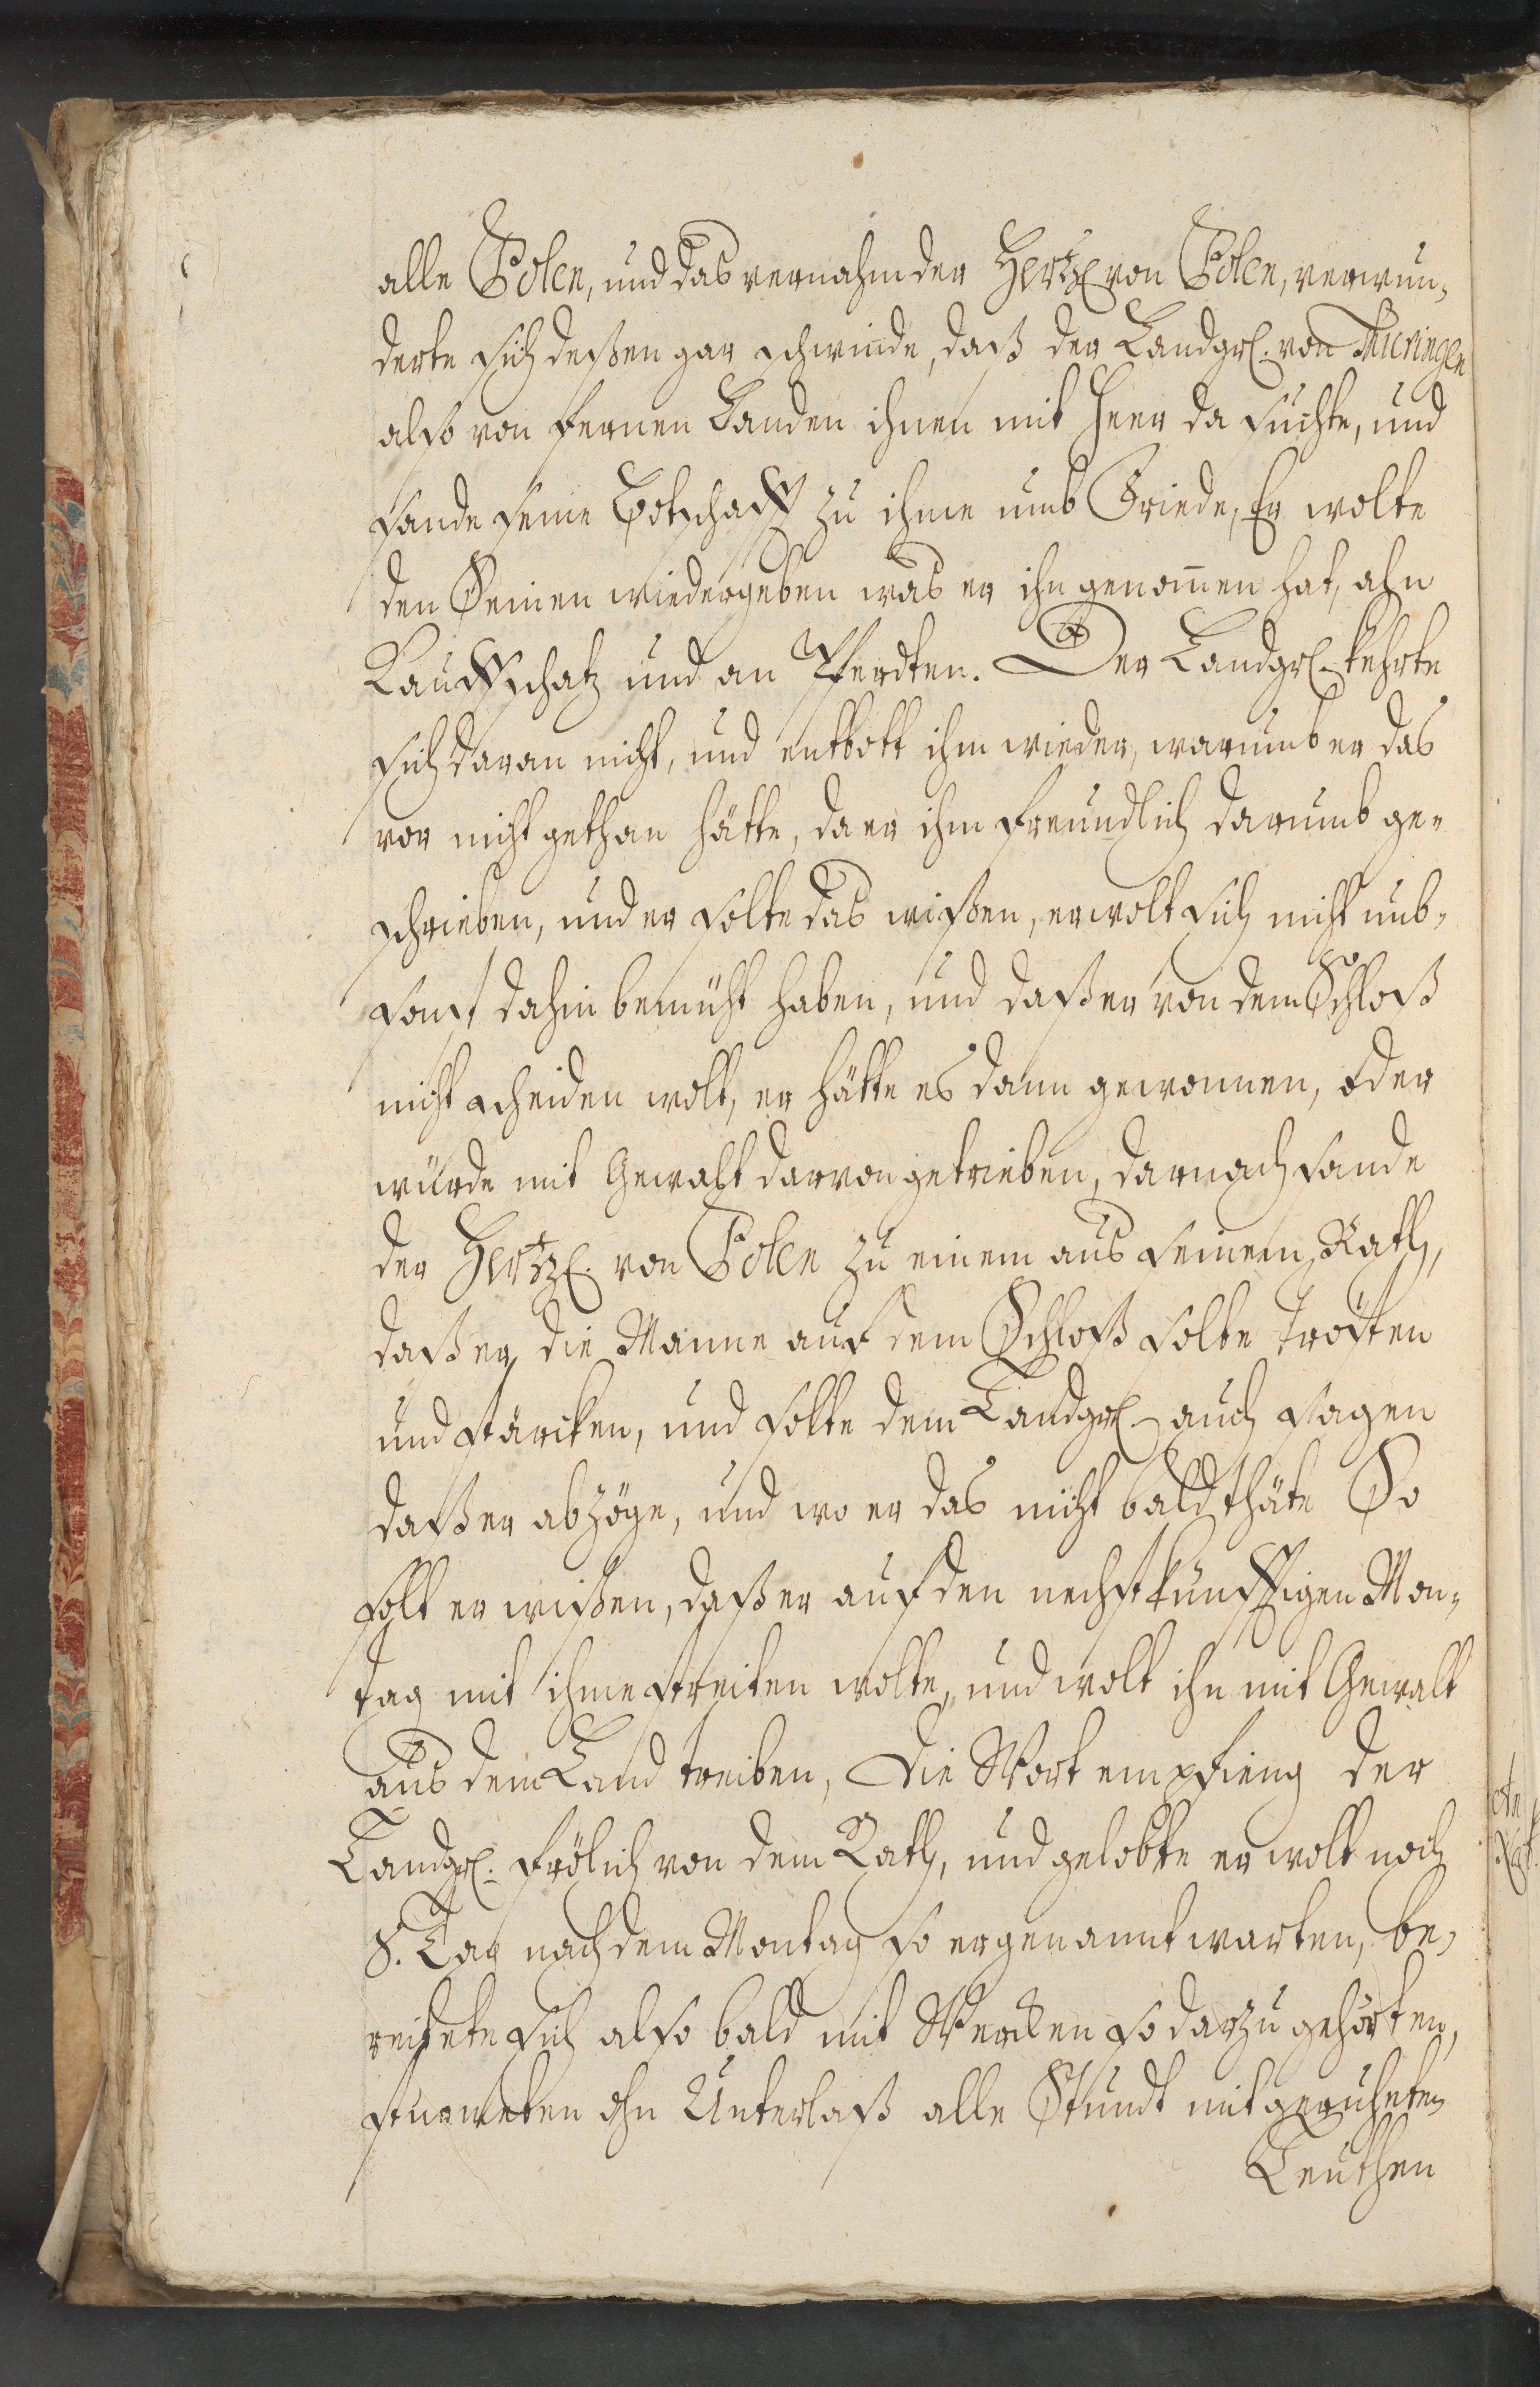 alle Polen, und das vernahm der Hertz. von Polen, verwun-
derte sich deßen gar schwinde, daß der Landgr. von Thüringen
also von fernen Landen ihnen mit Heer da suchte, und
sande seine Botschafft zu ihme umb Friede, Er wolte
den Seinen wiedergeben was er ihn genom̄en hat, ahn
Kauffschatz und an Pferdten. Der Landgr. kehrte
sich daran nicht, und entbott ihm wieder, warumb er das
vor nicht gethan hätte, da er ihm freundlich darumb ge-
schrieben, und er solte das wißen, er wolt sich nicht umb-
sonst dahin bemüht haben, und daß er von dem Schloß
nicht scheiden wolt, er hätte es dann gewonnen, oder
würde mit Gewalt darvon getrieben, darnach sande
der Hertz. von Polen zu einem aus seinem Rath,
daß er die Manne auf dem Schloß solte trösten
und stärcken, und solte dem Landgr. auch sagen
daß er abzöge, und wo er das nicht bald thäte So
solt er wißen, daß er auf den nechst künfftigen Mon-
tag mit ihme streiten wolte, und wolt ihn mit Gewalt
aus dem Land treiben, Die Wort empfieng der
Landgr. frölich von dem Rath, und gelobte er wolt noch
8. Tag nach dem Montag so er genannt warten, be-
reitete sich also bald mit Wercken so darzu gehörten,
sturmeten ohn Unterlaß alle Stundt mit geruheten
Leuthen